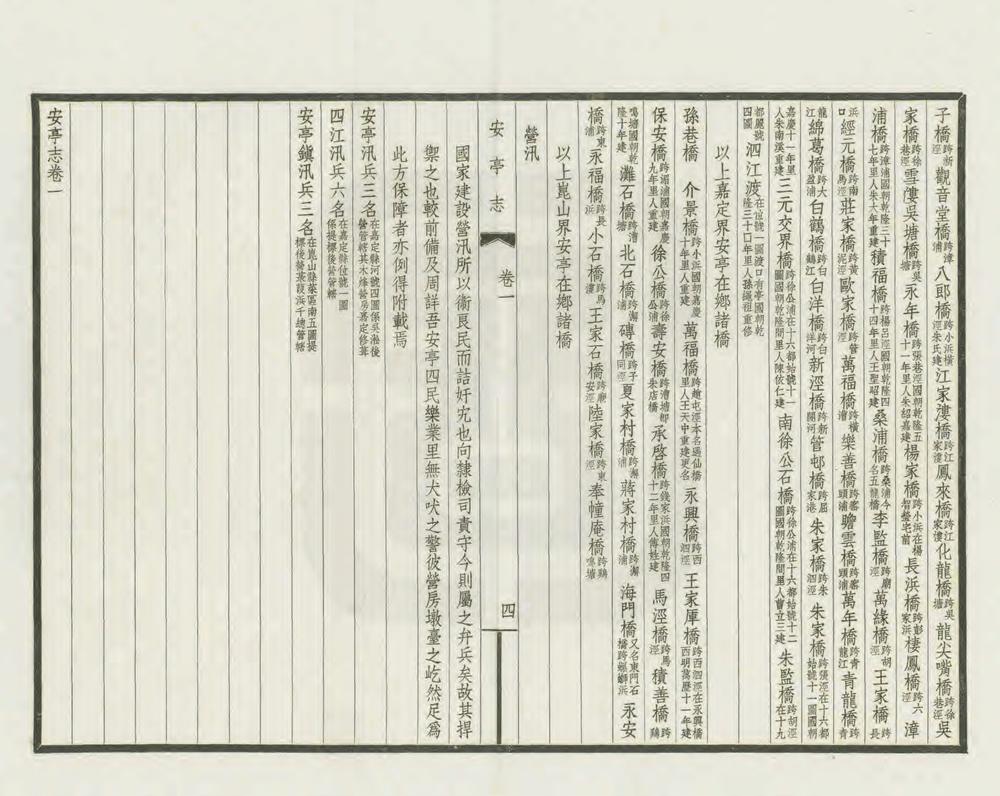 子橋跨新涇觀音堂橋跨漳浦八郎橋跨小浜橫涇朱氏建江家漊橋跨江家漊鳳來橋跨江家漊化龍橋跨吳塘龍尖嘴橋跨徐巷涇吳
家橋跨徐巷涇雪僡吳塘橋跨吳塘永年橋跨張巷涇國朝乾隆五十一年里人朱紹嘉建楊家橋跨小浜在楊智營宅前長浜橋跨彭家浜棲鳳橋跨六涇漳
浦橋跨漳浦國朝乾隆三十七年里人朱六年重建積福橋跨楊呂涇國朝乾隆四十四年里人王聖昭建桑浦橋跨桑浦今名五龍橋李監橋跨廟涇萬緣橋跨胡涇王家橋跨長
浜口經元橋跨南馬涇莊家橋跨黃泥涇歐家橋跨管涇萬福橋跨橫漕樂善橋跨密頭浦瞻雲橋跨密頭浦萬年橋跨青龍江青龍橋跨青
龍江綿葛橋跨大盈浦白鶴橋跨白鶴江白洋橋跨白洋河新涇橋跨新開河管邨橋跨屈家港朱家橋跨朱泗涇朱家橋跨張涇在十六都始號十一圖國朝
嘉慶十一年里人朱南漢重建三元交界橋跨徐公浦在十六都始號十一圖國朝乾隆間里人陳依仁建南徐公石橋跨徐公浦在十六都始號十二圖國朝乾隆間里人曹立三建朱監橋跨胡涇在十九
都麗號四圖泗江渡在位號一圖渡口有亭國朝乾隆三十□年里人孫繩祖重修
以上嘉定界安亭在鄉諸橋
孫巷橋介景橋跨小浜國朝嘉慶十年里人重建萬福橋跨趙屯涇本名遇仙橋里人王天中重建更名永興橋跨西泗涇王家厙橋跨西泗涇在永興橋西明萬歷十一年建
保安橋跨湄浦國朝嘉慶九年里人重建徐公橋跨徐公浦壽安橋跨漕塘卽朱店橋承啓橋跨錢家浜國朝乾隆四十二年里人傅姓建馬涇橋跨馬涇積善橋跨鷄
鳴塘國朝乾隆十年建灘石橋跨漕塘北石橋跨澥浦磚橋跨子同涇夏家村橋跨澥浦蔣家村橋跨澥浦海門橋又名東門石橋跨螄螄浜永安
橋跨東浦永福橋跨長浜小石橋跨馬漊王家石橋跨廟安涇陸家橋跨東涇奉幢庵橋跨鷄鳴塘
以上崑山界安亭在鄉諸橋
營汛
國家建設營汛所以衞良民而詰奸宄也向隸檢司責守今則屬之弁兵矣故其捍
禦之也較前備及周詳吾安亭四民樂業里無犬吠之警彼營房墩臺之屹然足爲
此方保障者亦例得附載焉
安亭汛兵三名在嘉定縣河號四圖係吳淞後營管轄其木烽營房嘉定修葺
四江汛兵六名在嘉定縣位號一圖係提標後營管轄
安亭鎭汛兵三名在崑山縣菜區南五圖提標後營菉葭浜千總管轄
安亭志卷一
安亭志
卷一
四